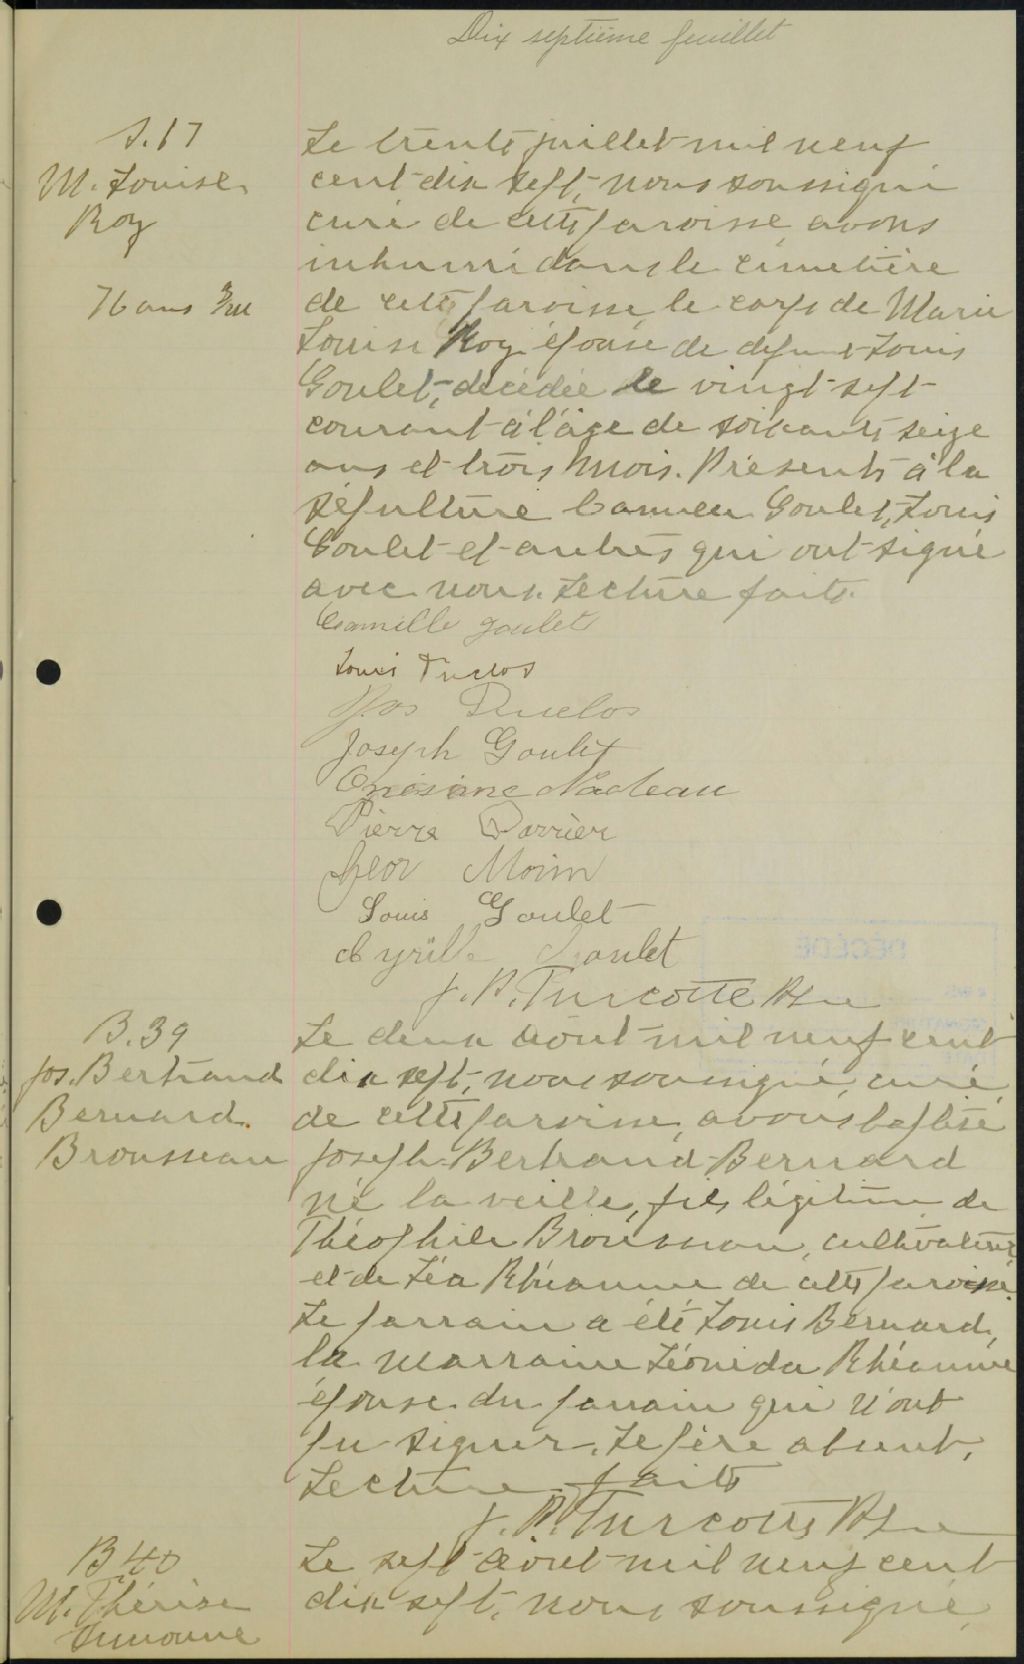 Dix septième feuillet
S. 17
M. Louise
Roy
76 ans 3/m
Le trente juillet mil neuf
cent dix sept, nous soussigné
curé de cette paroisse avons
inhumé dans le cimetière
de cette paroisse le corps de Marie
Louise Roy épouse de défunt Louis
Goulet, décédée le vingt sept
courant à l'âge de soixante seize
ans et trois mois. Présents à la
sépulture Camille Goulet, Louis
Goulet et autres qui ont signé
avec nous. Lecture faite.
Camille goulet
Louis Duclos
Jos Duclos
Joseph Goulet
Onésime Nadeau
Pierre
Geor Morin
Louis Goulet
Cyrille Goulet
J. P. Turcotte Ptre
B. 39
Jos. Bertrand
Bernard
Brousseau
Le deux août mil neuf cent
dix sept, nous soussigné, curé
de cette paroisse, avons baptisé
Joseph Bertrand Bernard
né la veille, fils légitime de
Théophile Brousseau, cultivateur
et de Léa Rhéaume de cette paroisse.
Le parrain a été Louis Bernard,
la marraine Léonida Rhéaume
épouse du parrain qui n'ont
pu signer. Le père absent,
Lecture faite
J. P. Turcotte Ptre
B. 40
M. Thérèse
Le sept août mil neuf cent
dix sept, nous soussigné,
DÉCÉDÉ